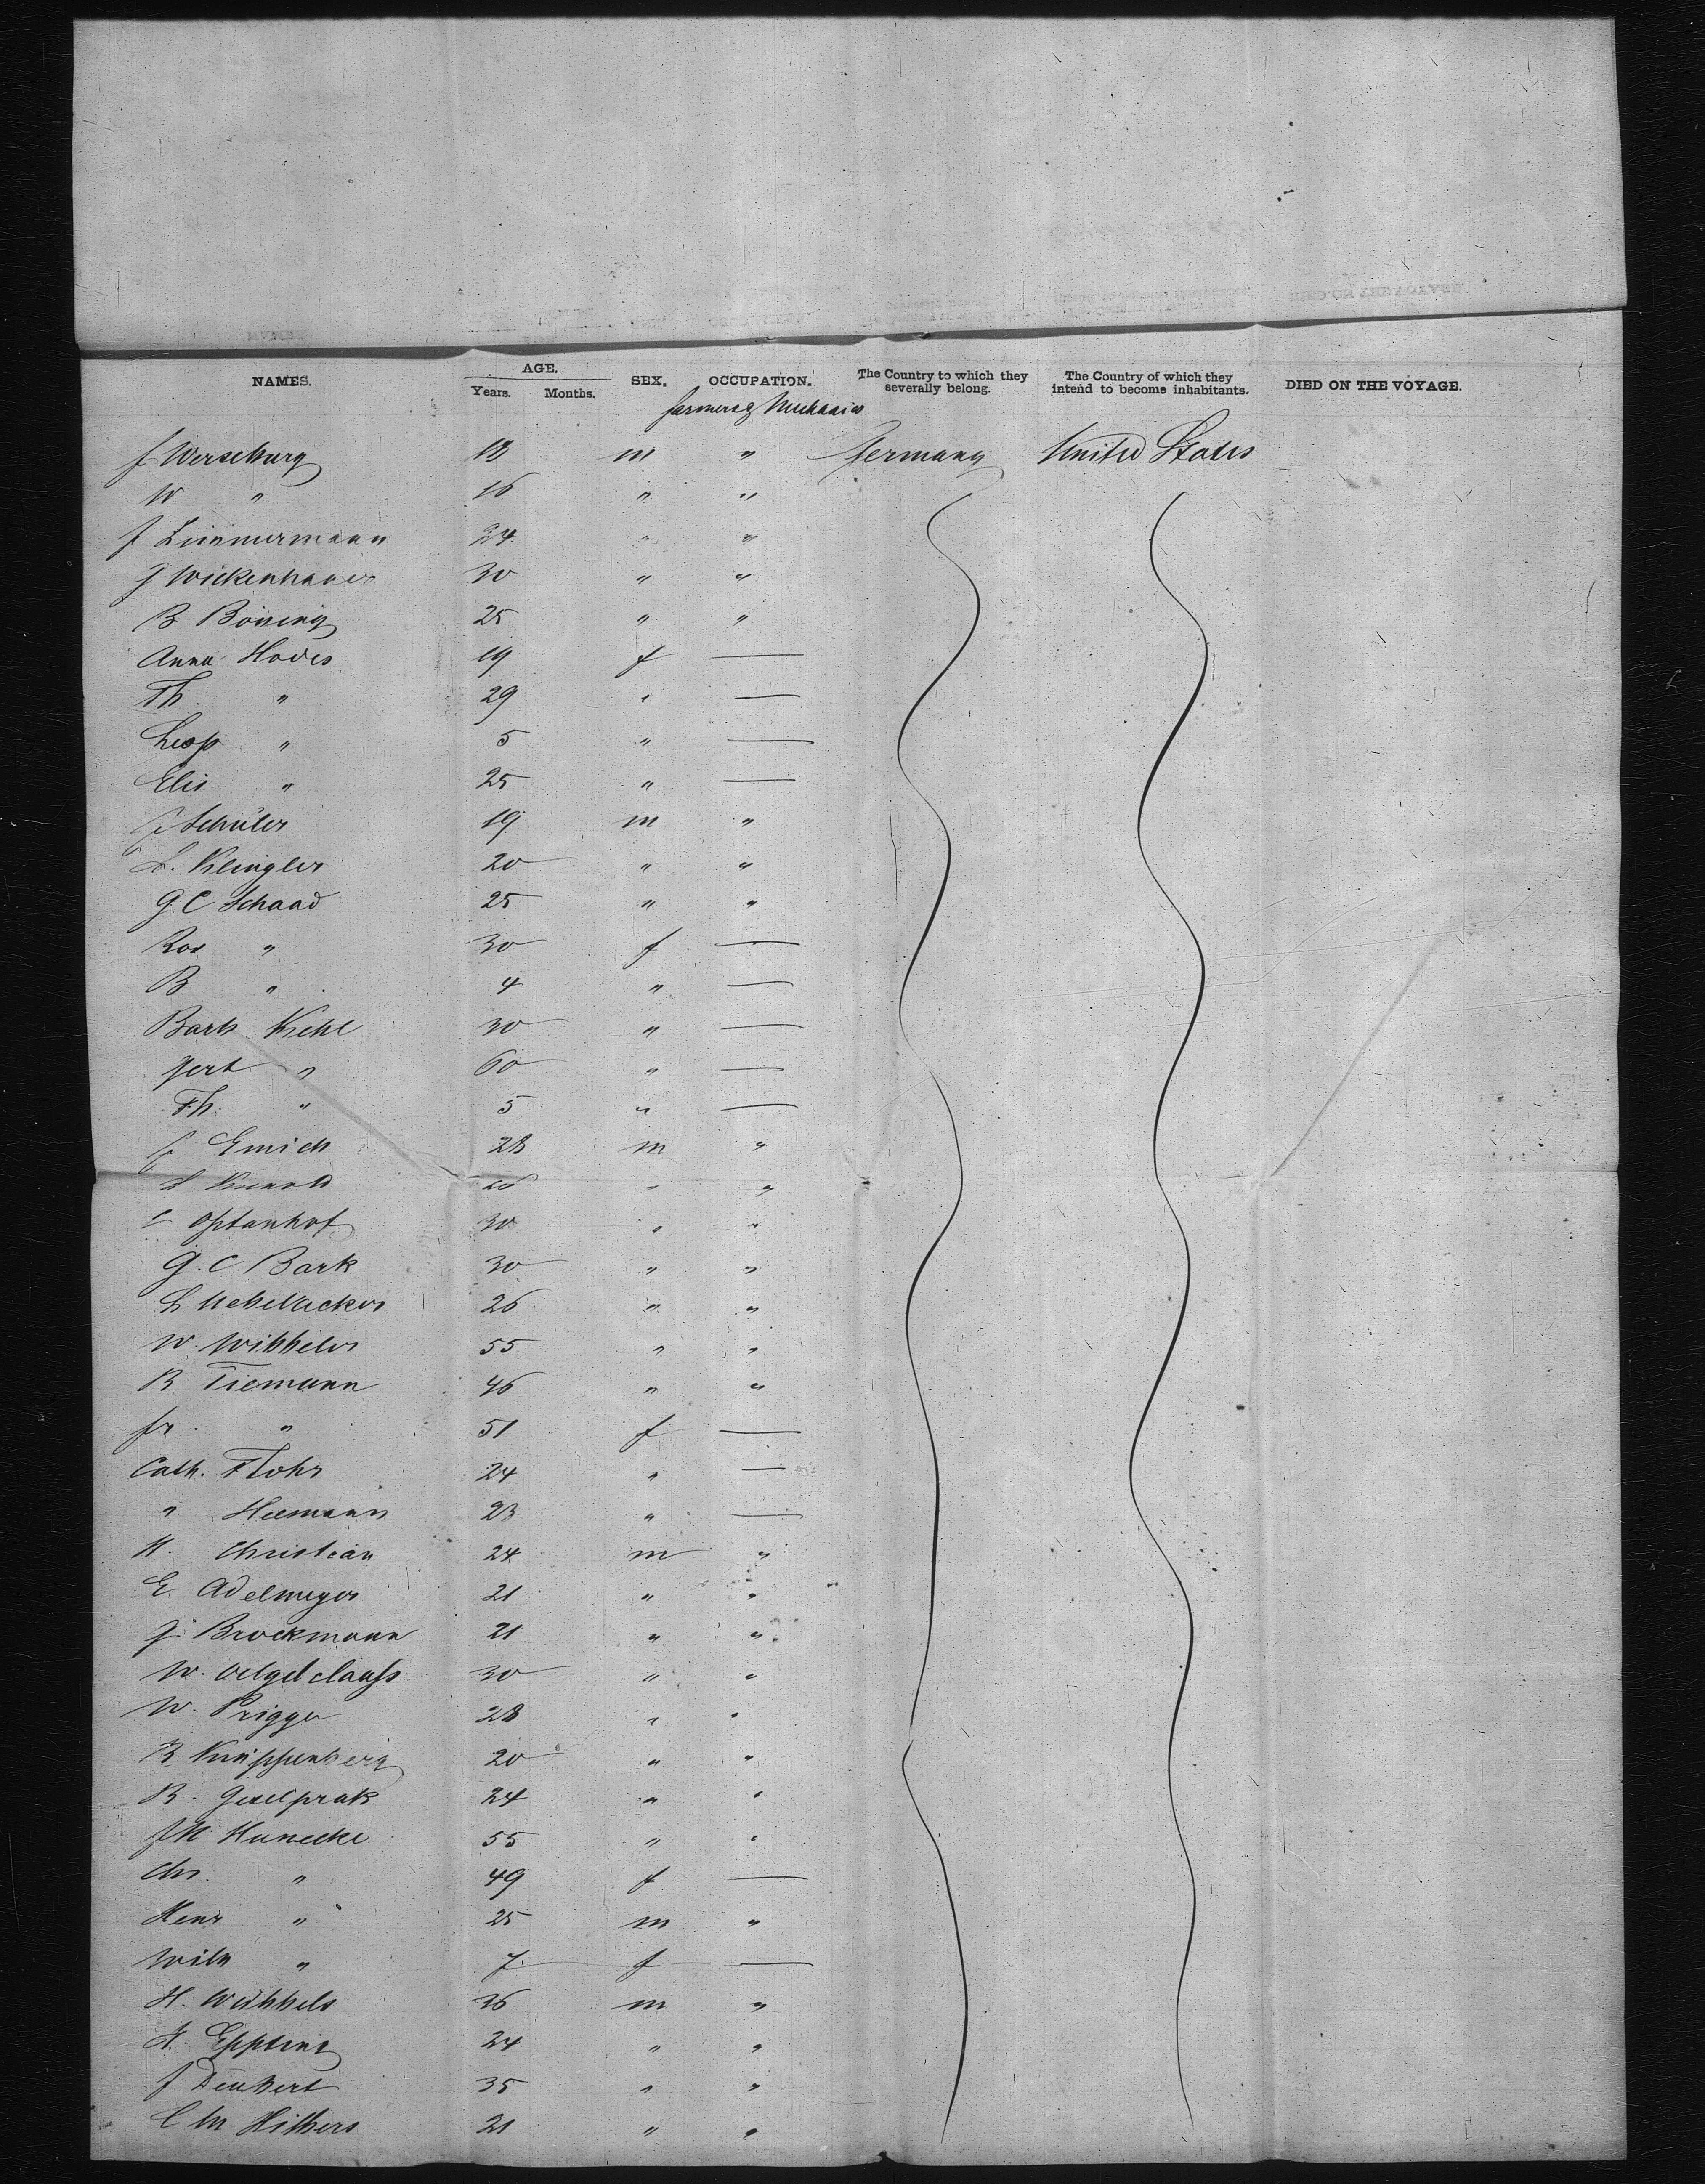 NAMES. AGE. SEX. OCCUPATION. The Country to which they severally belong. The Country of which they intend to become inhabitants. DIED ON THE VOYAGE.
Years. Months.
farmers & Mechanics
J Werseburg 18 m " Germany United States
W " 16 " "
J Zimmermann 24 " "
J Wickenhauer 30 " "
B Böning 25 " "
Anna Hoves 19 f —
Th " 29 " —
Leop " 5 " —
Elis " 25 " —
J Schüler 19 m "
L. Klingler 20 " "
G. C Schaad 25 " "
Ros " 30 f —
B " 4 " —
Barb. Kehl 30 " —
Gert " 60 " —
Th. " 5 " —
J Emich 28 m "
" "
30 " "
G. C Bark 30 " "
L Uebelacker 26 " "
W. Wibbeler 55 " "
B Tiemann 46 " "
Fr. " 51 f —
Cath. Flohr 24 " —
" Heemann 23 " —
H. Christian 24 m "
E. Adelmeyer 21 " "
J. Brockmann 21 " "
W. Oelgeclauss 30 " "
W. Prigge 28 " "
B Knippenberg 20 " "
B. 24 " "
J H Hunecke 55 " "
Chr. " 49 f —
Henr " 25 m "
Wilh " 7 f —
H. Wübbels 26 m "
H. Epping 24 " "
J Deubert 35 " "
C M Hilbers 21 " "